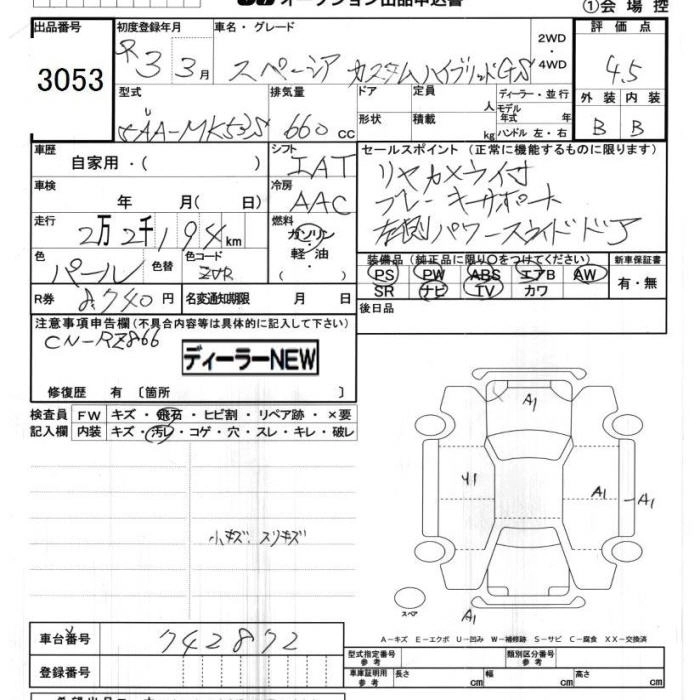 オープンオークション出品申込書
①会場控
出品番号 3053
初度登録年月 R 3 3月
車名・グレード スペーシア カスタムハイブリッドGS
2WD・4WD
評価点 4.5
外装 B 内装 B
型式 5AA-MK53S
排気量 660 cc
ドア 形状
定員 人 積載 kg
ディーラー・並行
モデル年式 年
ハンドル 左・右
車歴 自家用・( )
シフト IAT
車検 年 月( 日)
冷房 AAC
走行 2万2千194km
燃料 ガソリン・軽油・( )
色 パール 色替 色コード ZVR
R券 8,740円 名変通知期限 月 日
セールスポイント(正常に機能するものに限ります)
リヤカメラ付
ブレーキサポート
左側パワースライドドア
装備品(純正品に限り○をつけてください) 新車保証書
PS PW ABS エアB AW 有・無
SR ナビ TV カワ
後日品
注意事項申告欄(不具合内容等は具体的に記入して下さい)
CN-RZ866
ディーラーNEW
修復歴 有〔箇所 〕
検査員 FW キズ・飛石・ヒビ割・リペア跡・×要
記入欄 内装 キズ・汚レ・コゲ・穴・スレ・キレ・破レ
小キズ スリキズ
A1
Y1
A1
A1
A1
スペア
A-キズ E-エクボ U-凹み W-補修跡 S-サビ C-腐食 XX-交換済
車台番号 742872
登録番号
型式指定番号 参考 類別区分番号 参考
車庫証明用 参考 長さ cm 幅 cm 高さ cm